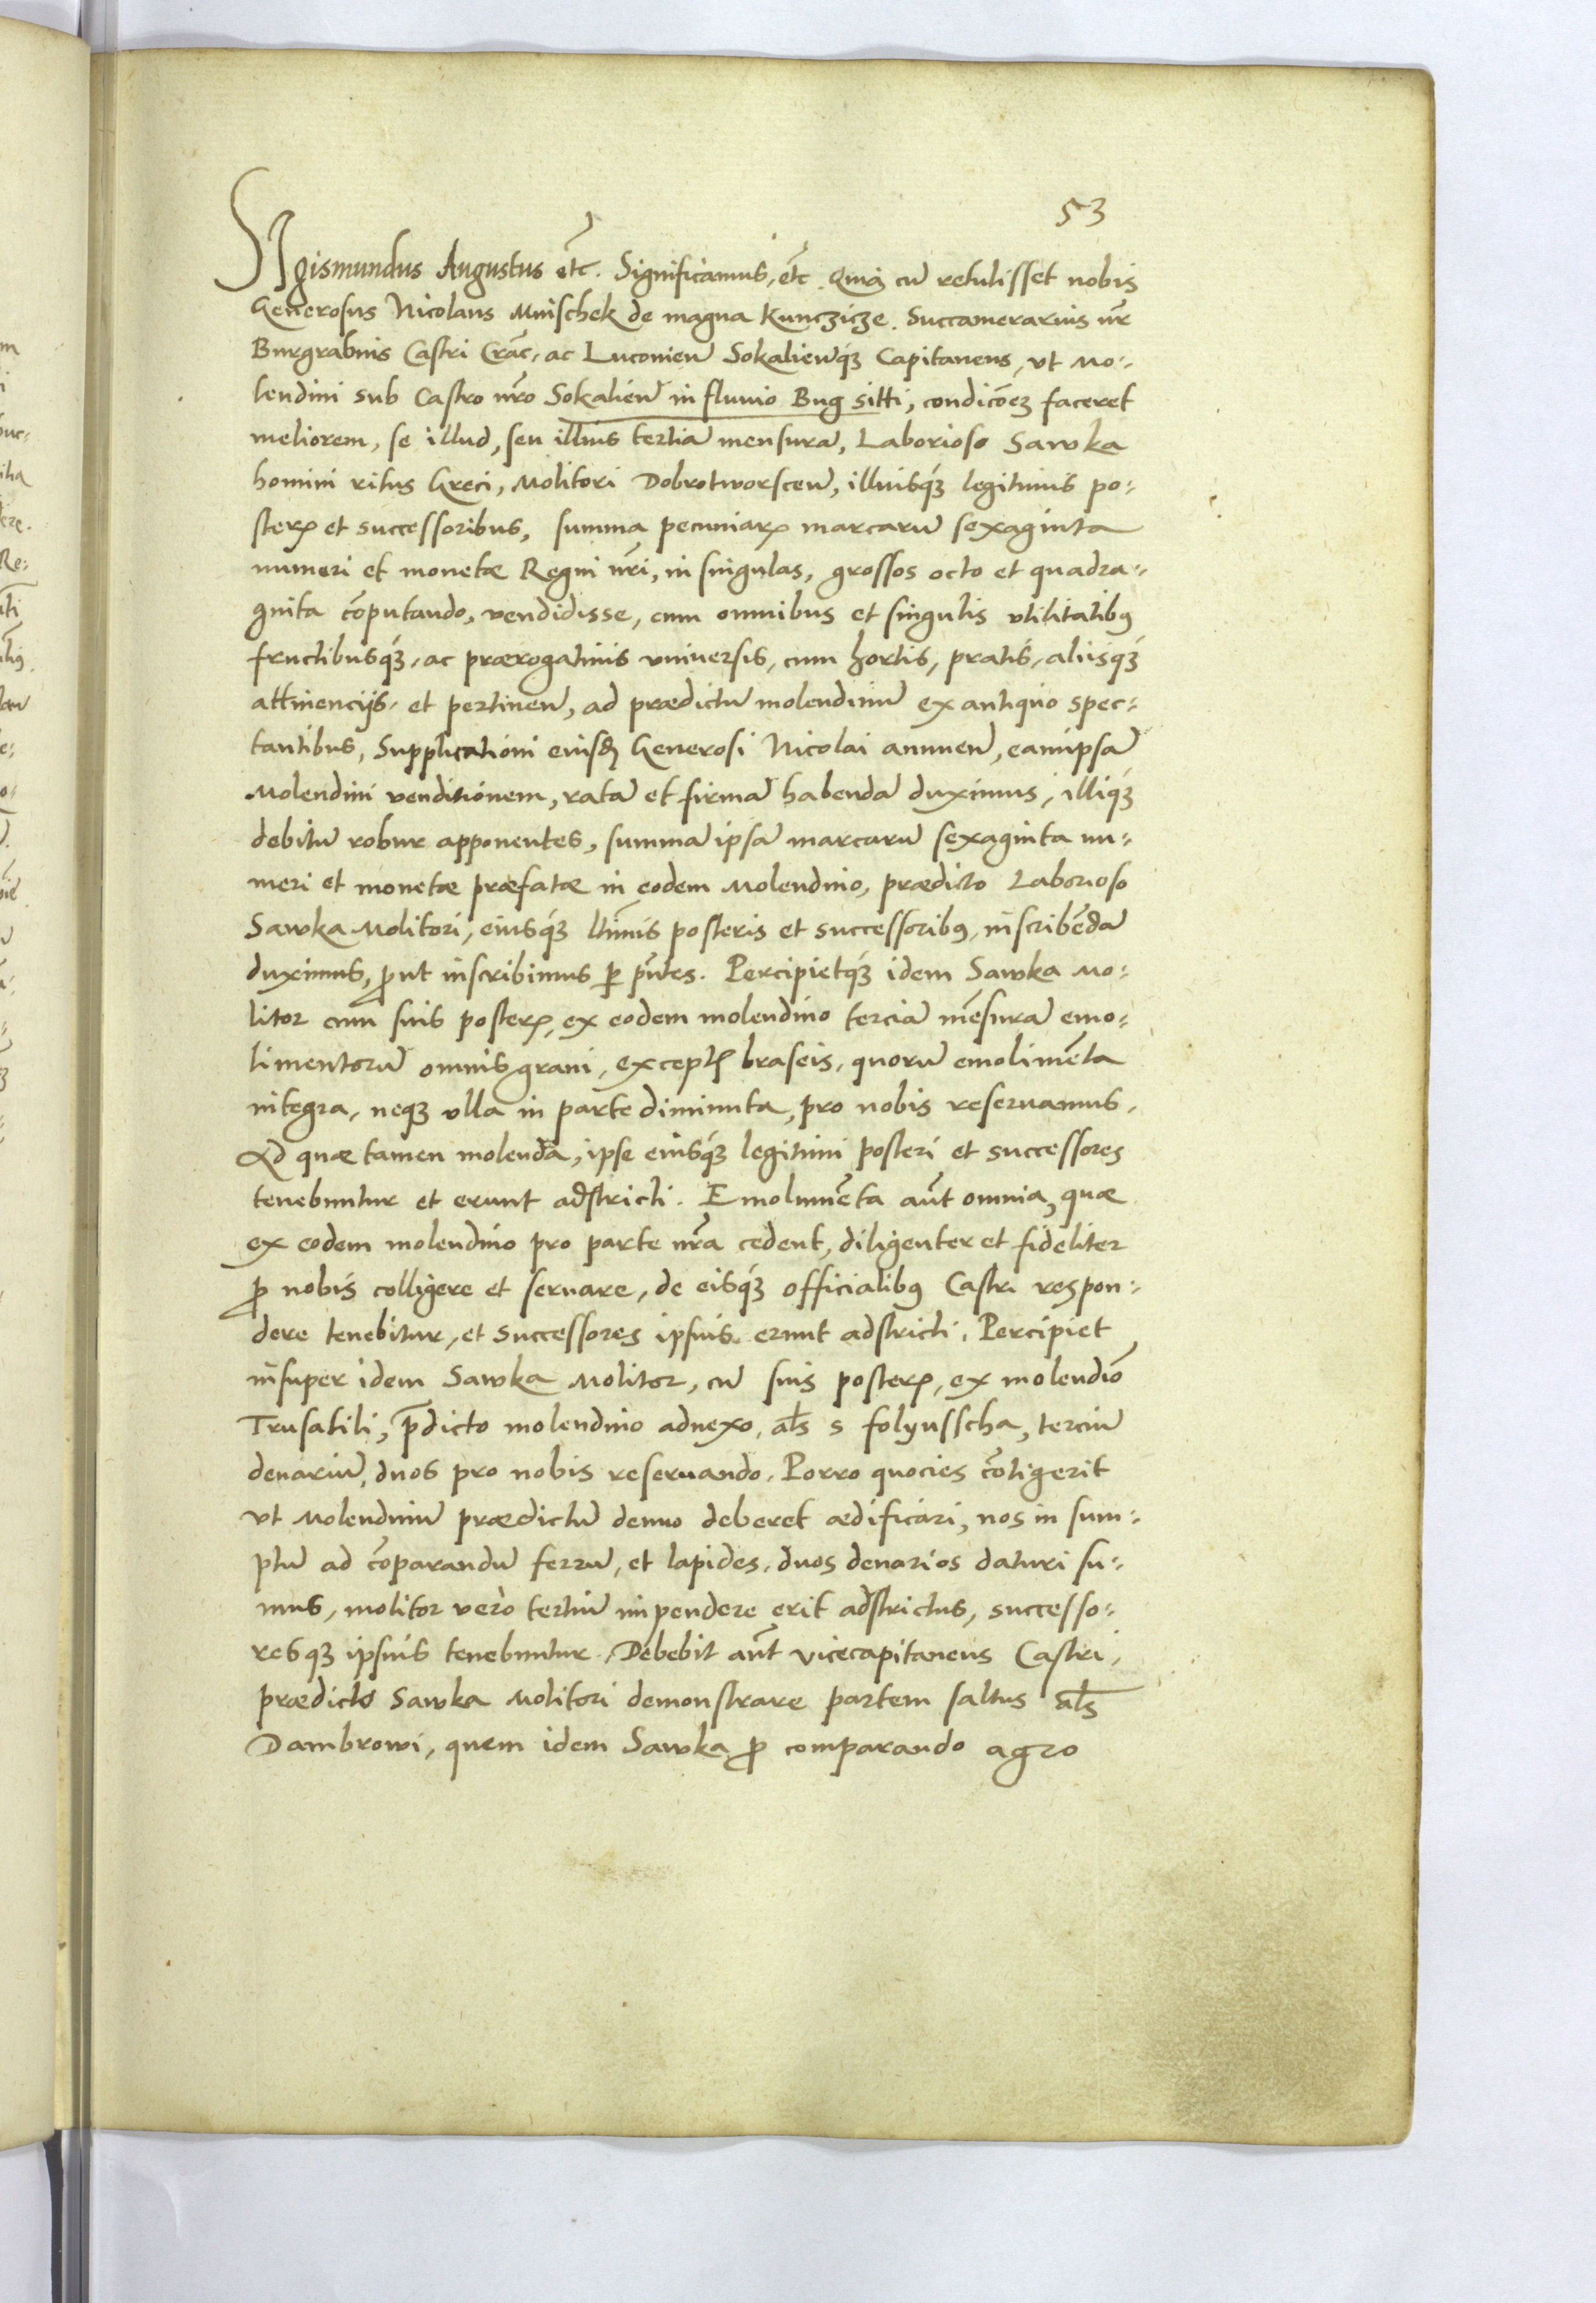 53
SIgismundus Augustus etc. Significamus, etc. Quia cū retulisset nobis
Generosus Nicolaus Mnischek de magna Kunczicze. Succamerarius nr̄
Burgrabius Castri Crac̄. ac Luconieñ Sokalieñq́ꝫ Capitaneus, vt Mo⸗
lendini sub Castro nr̄o Sokalieñ in fluuio Bug sitti, condicōeꝫ faceret
meliorem, se illud, seu illius tertiā mensurā, Laborioso Sawka
homini ritus Greci, Molitori Dobrotworsceñ, illiusq́ꝫ legitimis po⸗
sterꝭ et successoribus, summa pecuniarꝭ marcarū sexaginta
numeri et monetæ Regni nr̄i, in singulas, grossos octo et quadra⸗
ginta cōputando, vendidisse, cum omnibus et singulis vtilitatibꝰ
fructibusq́ꝫ, ac prærogatiuis vniuersis, cum hortis, pratis, aliisq́ꝫ
attinencijs, et pertineñ, ad prædictū molendinū ex antiquo spec⸗
tantibus, Supplicationi eiusd̄ Generosi Nicolai annueñ, eamipsā
Molendini venditionem, ratā et firmā habendā duximus, illiq́ꝫ
debitū robur apponentes, summā ipsā marcarū sexaginta nu⸗
meri et monetæ præfatæ in eodem Molendino, prædicto Laborioso
Sawka Molitori, eiusq́ꝫ ltīmis posteris et successoribꝰ, inscribēdā
duximus, ꝓut inscribimus ꝑ pn̄tes. Percipietq́ꝫ idem Sawka Mo⸗
litor cum suis posterꝭ, ex eodem molendino terciā mēsurā emo⸗
limentorū omnis grani, exceptꝭ braseis, quorū emolimēta
integra, neqꝫ vlla in parte diminuta, pro nobis reseruamus.
Ad quæ tamen molenda, ipse eiusq́ꝫ legitimi posteri et successores
tenebuntur et erunt adstricti. Emolumēta aūt omnia, quæ
ex eodem molendino pro parte nr̄a cedent, diligenter et fideliter
ꝓ nobis colligere et seruare, de eisq́ꝫ officialibꝰ Castri respon⸗
dere tenebitur, et successores ipsius erunt adstricti. Percipiet
insuper idem Sawka Molitor, cū suis posterꝭ, ex molendīo
Trusatili, p̄dicto molendino adnexo, als̄ s folyusscha, terciū
denariū, duos pro nobis reseruando. Porro quocies cōtigerit
vt Molendinū prædictū denuo deberet ædificari, nos in sum⸗
ptū ad cōparandū ferrū, et lapides, duos denarios daturi su⸗
mus, molitor vero tertiū impendere erit adstrictus, successo⸗
resqꝫ ipsius tenebuntur. Debebit aūt vicecapitaneus Castri,
prædicto Sawka Molitori demonstrare partem saltus als̄
Dambrowi, quem idem Sawka ꝓ comparando agro